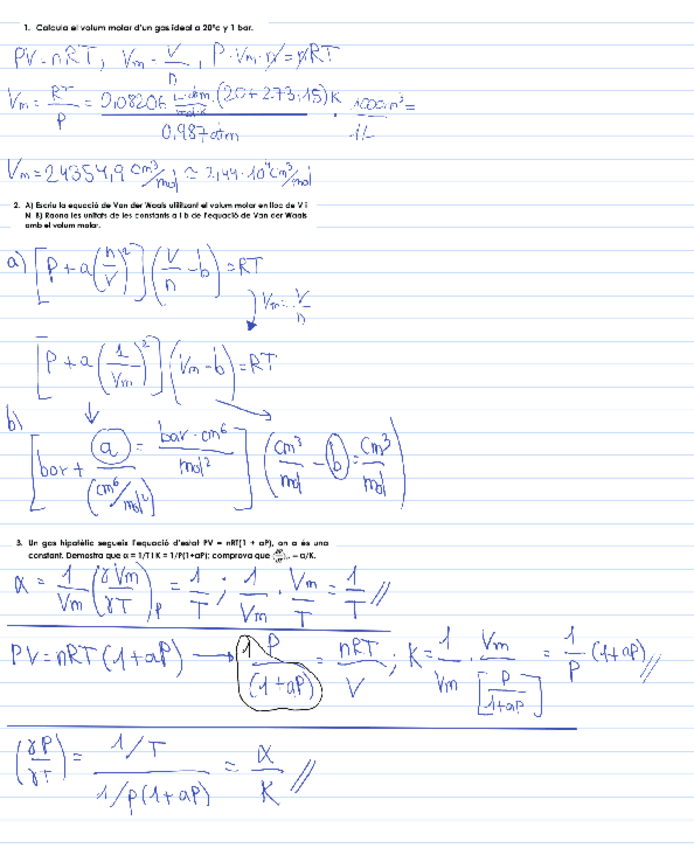 1. Calcula el volum molar d'un gas ideal a 20ºc y 1 bar.
PV=nRT, Vm = V/n, P·Vm·n=nRT
Vm = RT/P = 0,08206 L·atm/mol·K · (20+273,15)K / 0,987 atm · 1000cm³/1L =
Vm = 24354,9 cm³/mol ≈ 2,44·10⁴ cm³/mol
2. A) Escriu la equació de Van der Waals utilitzant el volum molar en lloc de V i
N. B) Raona les unitats de les constants a i b de l'equació de Van der Waals
amb el volum molar.
a) [P + a(n/V)²](V/n - b) = RT
Vm = V/n
[P + a(1/Vm)²](Vm - b) = RT
b)
[bar + a = bar·cm⁶/mol² / (cm⁶/mol²)] (cm³/mol - b = cm³/mol)
3. Un gas hipotètic segueix l'equació d'estat PV = nRT(1 + aP), on a és una
constant. Demostra que α = 1/T i K = 1/P(1+aP); comprova que = α/K.
α = 1/Vm (γVm/γT)P = 1/T ; 1/Vm · Vm/T = 1/T //
PV = nRT(1+aP) → 1 P/(1+aP) = nRT/V ; K = 1/Vm · Vm/[P/1+aP] = 1/P (1+aP) //
(γP/γT) = 1/T / 1/p(1+aP) = α/K //